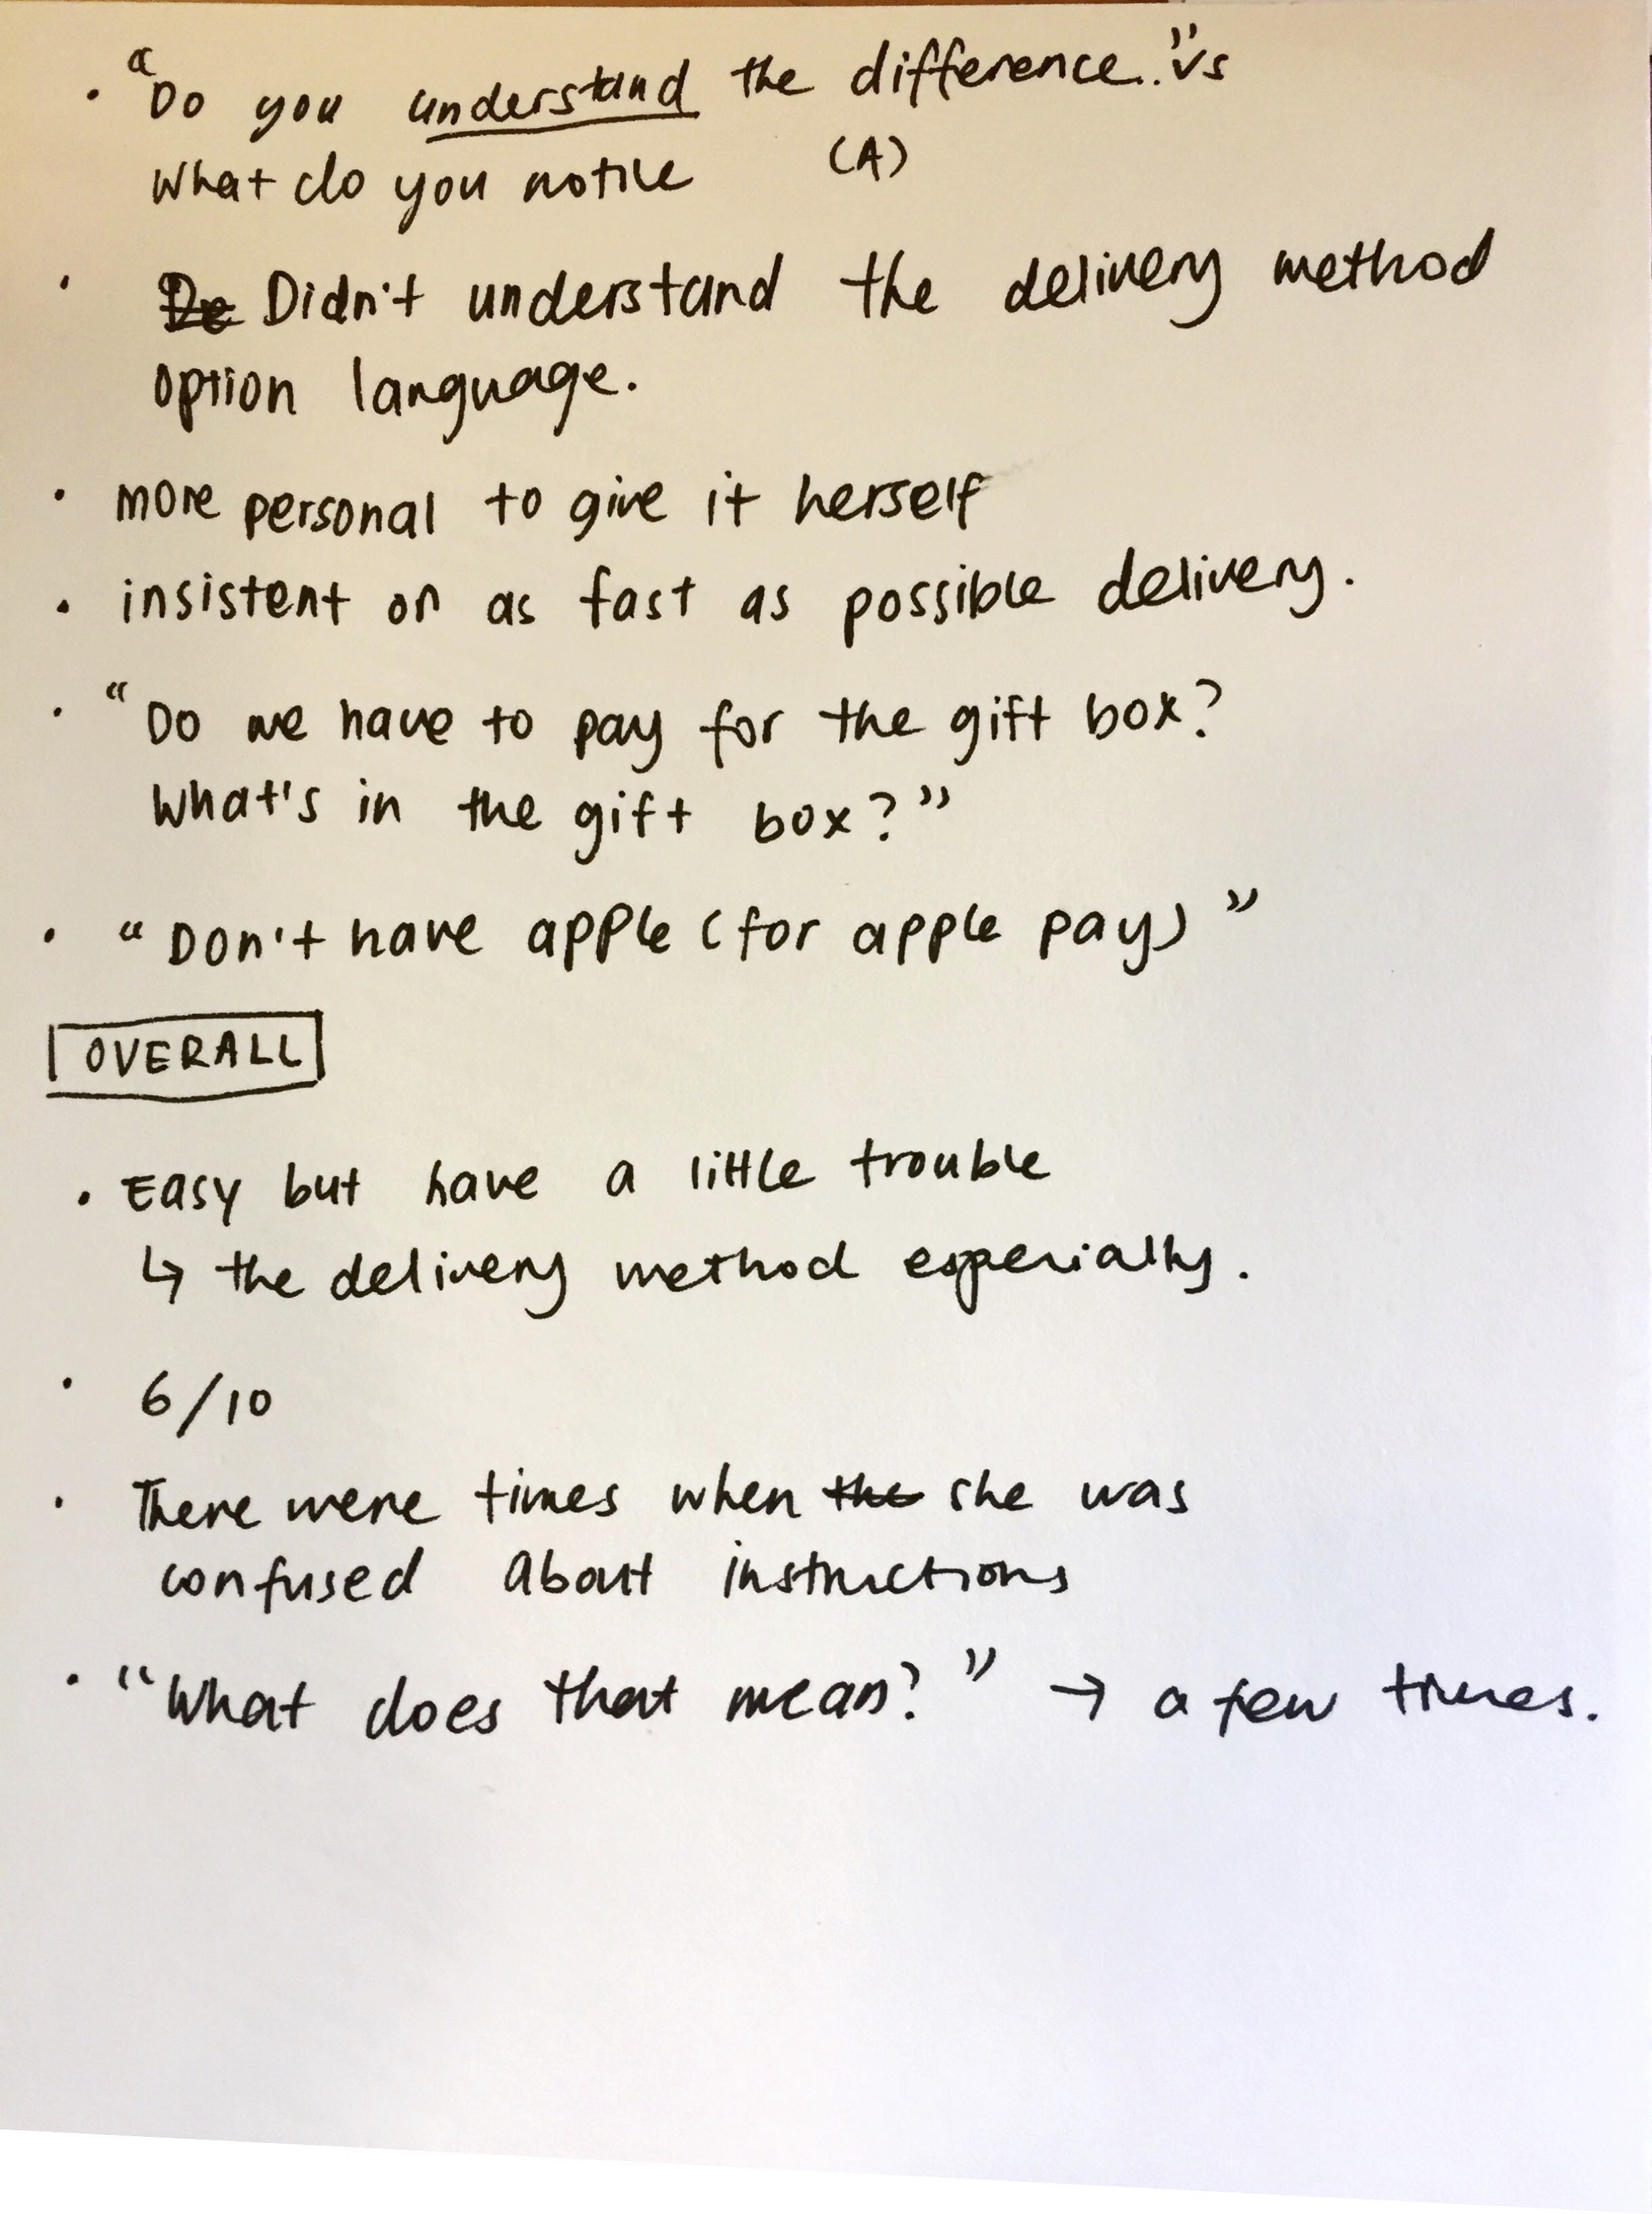 · "Do you understand the difference.." vs
What do you notice (A)
· De Didn't understand the delivery method
option language.
· more personal to give it herself
· insistent on as fast as possible delivery.
· "Do we have to pay for the gift box?
What's in the gift box?"
· "Don't have apple (for apple pay)"
OVERALL
· Easy but have a little trouble
↳ the delivery method especially.
· 6/10
· There were times when the she was
confused about instructions
· "What does that mean?" → a few times.